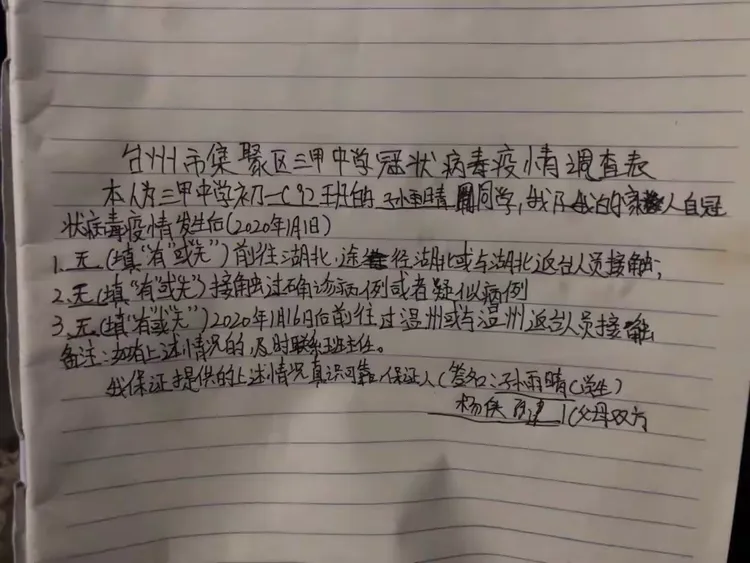 台州市集聚区三甲中学冠状病毒疫情调查表
本人为三甲中学初一(9)班的孙雨晴同学,我及我的家人自冠
状病毒疫情发生后(2020年1月1日)
1.无(填“有”或“无”)前往湖北、途往湖北或与湖北返台人员接触;
2.无(填“有”或“无”)接触过确诊病例或者疑似病例
3.无(填“有”或“无”)2020年1月16日后前往过温州或与温州返台人员接触
备注:如有上述情况的,及时联系班主任。
我保证提供的上述情况真识可靠.保证人(签名:孙雨晴(学生)
杨侠 (父母双方